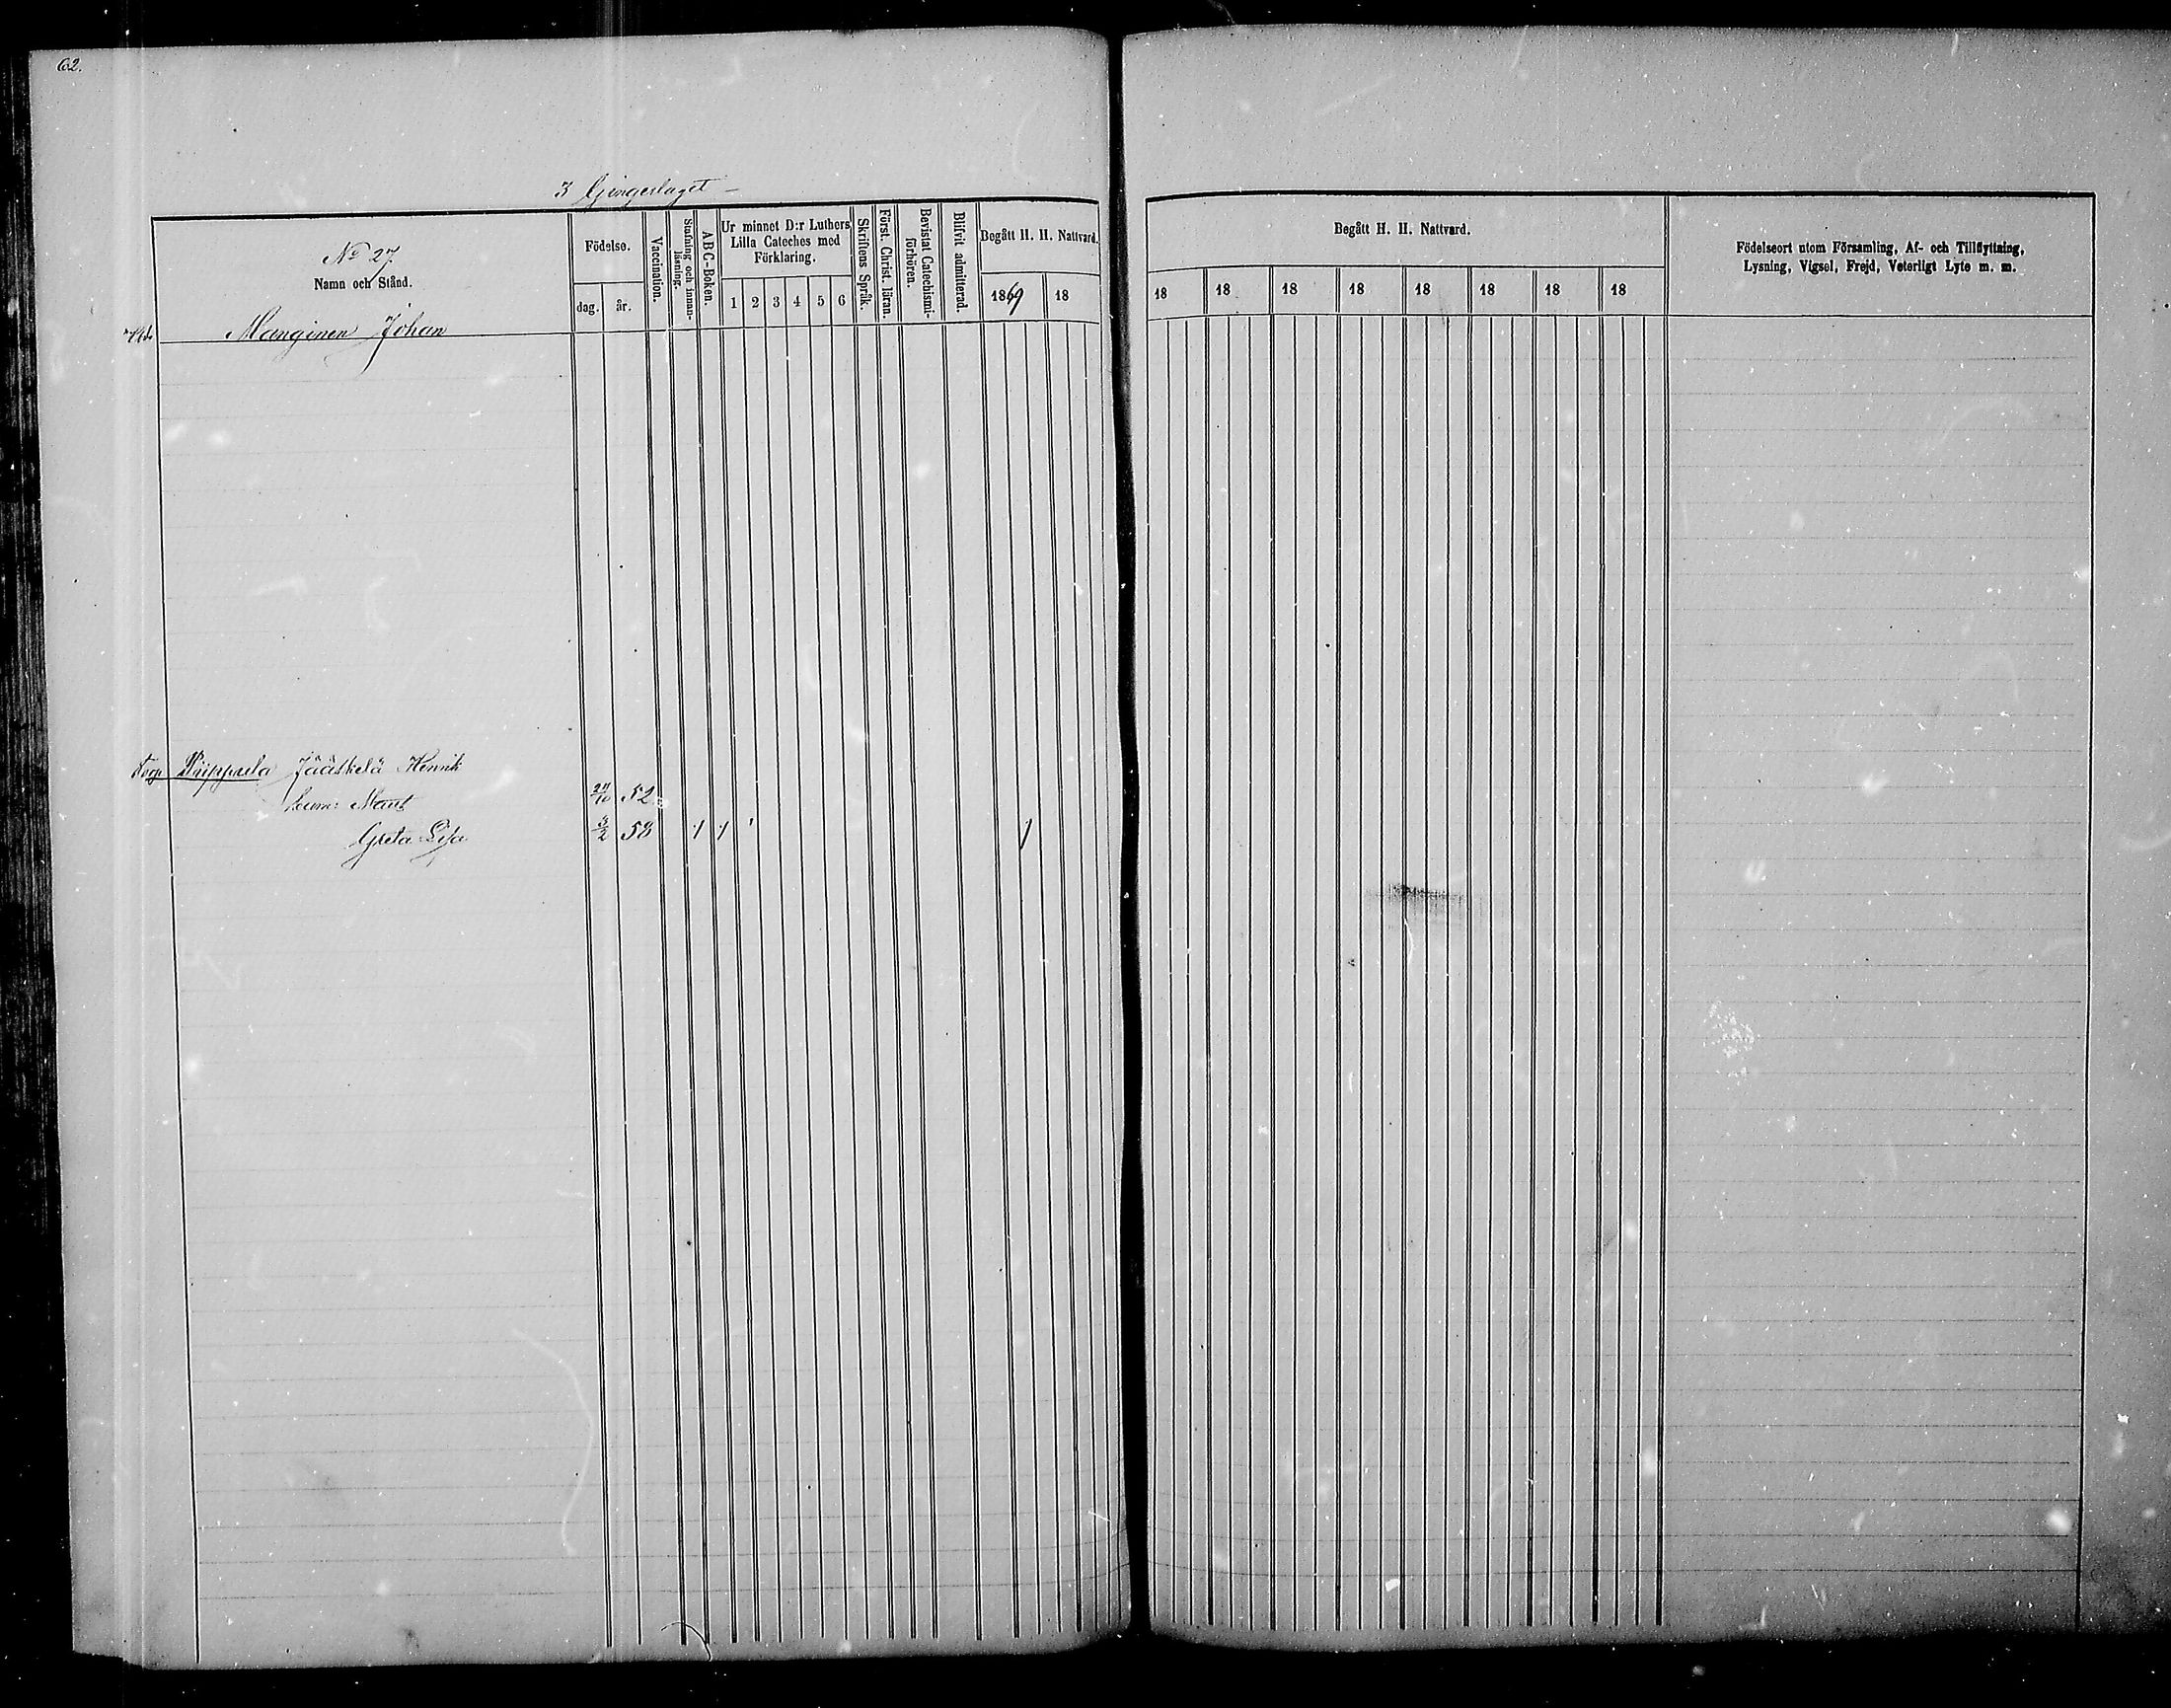 62.
3 Gingeslaget
No 27
Namn och Stånd.
Födelse.
dag. år.
Vaccination.
Stafning och innan-
läsning.
ABC-Boken.
Ur minnet D:r Luthers
Lilla Cateches med
Förklaring.
1 2 3 4 5 6
Skriftens Språk.
Först. Christ. läran.
Bevistat Catechismi-
förhören.
Blifvit admitterad.
Begått H. H. Nattvard.
1869 18
Begått H. H. Nattvard.
18 18 18 18 18 18 18 18
Födelseort utom Församling, Af- och Tillflyttning,
Lysning, Vigsel, Frejd, Veterligt Lyte m. m.
Manginen Johan
Torp Jääskelä Henrik
27/10 52
Greta Lisa 3/2 58